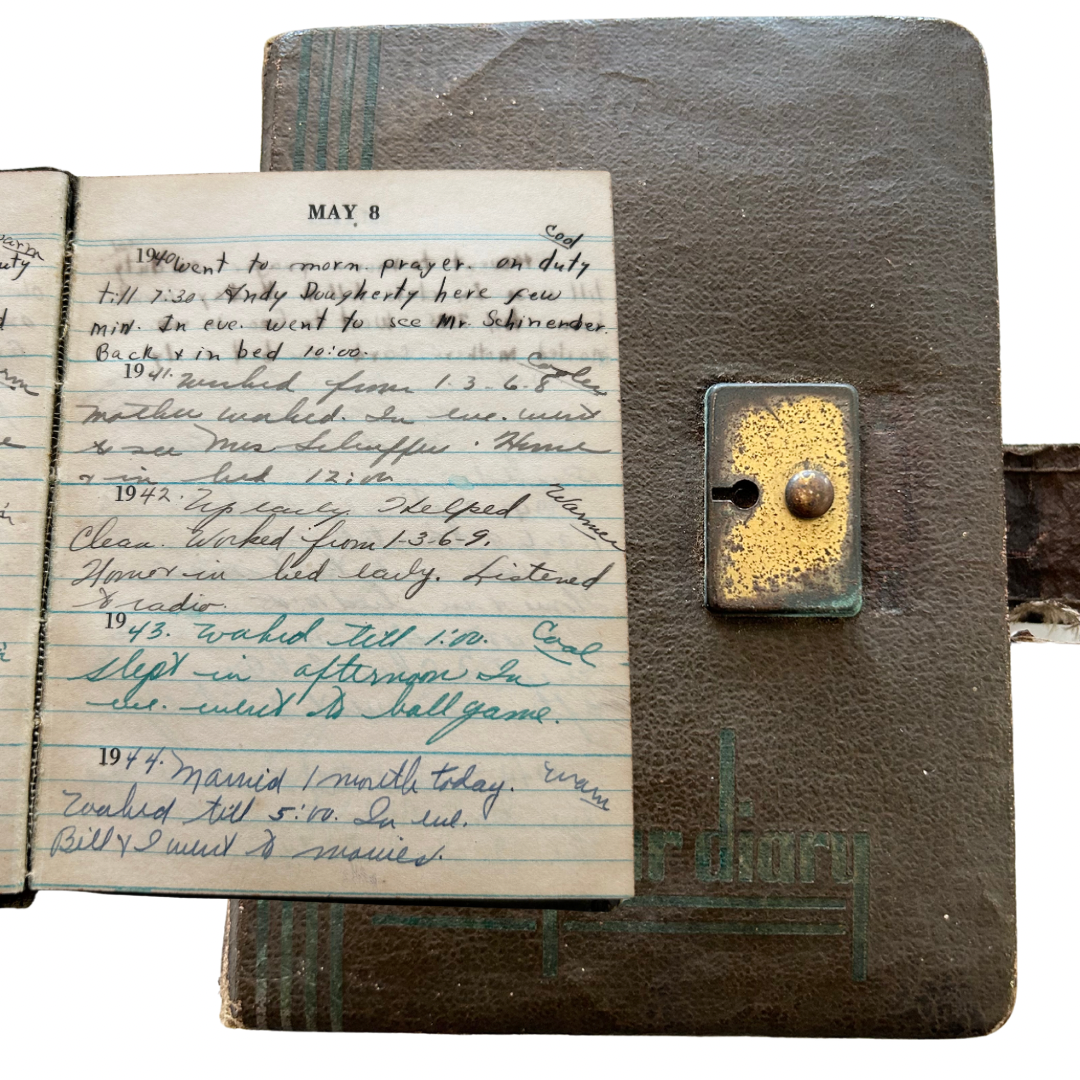 MAY 8
Cool
1940 Went to morn. prayer. on duty
till 7:30 Andy Dougherty here few
min. In eve. went to see Mr. Schinender.
Back & in bed 10:00.
1941. Worked from 1-3-6-8 Cooler
Mother worked. In eve. went
to see Mrs
Home
& in bed 12:00
1942. Up early. Helped Warmer
Clean. Worked from 1-3-6-9.
Home & in bed early. Listened
to radio.
1943. Worked till 1:00. Cool
slept in afternoon In
eve. went to ball game.
1944. Married 1 month today. Warm
Worked till 5:00. In eve.
Bill & I went to movies.
arm
uty
r diary